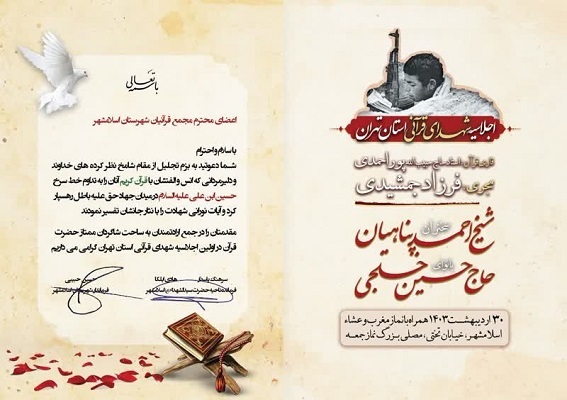 باسمه تعالی
اعضای محترم مجمع قرآنیان شهرستان اسلامشهر
با سلام و احترام
شما دعوتید به بزم تجلیل از مقام شامخ نظر کرده های خداوند
و دلیرمردانی که انس و الفتشان با قرآن کریم آنان را به تداوم خط سرخ
حسین ابن علی علیه السلام در میدان جهاد حق علیه باطل رهسپار
کرد و آیات نورانی شهادت را با نثار جانشان تفسیر نمودند
مقدمتان را در جمع ارادتمندان به ساحت شاگردان ممتاز حضرت
قرآن در اولین اجلاسیه شهدای قرآنی استان تهران گرامی می داریم
سرهنگ پاسدار
فرمانده ناحیه حضرت سیدالشهداء اسلامشهر
حبیبی
فرماندار شهرستان اسلامشهر
اجلاسیه شهدای قرآنی استان تهران
قاری قرآن: استاد پوراحمدی
مجری: فرزاد جمشیدی
سخنران
شیخ احمد پناهیان
بانوای
حاج حسین خلجی
۳۰ اردیبهشت ۱۴۰۳ همراه با نماز مغرب و عشاء
اسلامشهر، خیابان تختی، مصلی بزرگ نماز جمعه